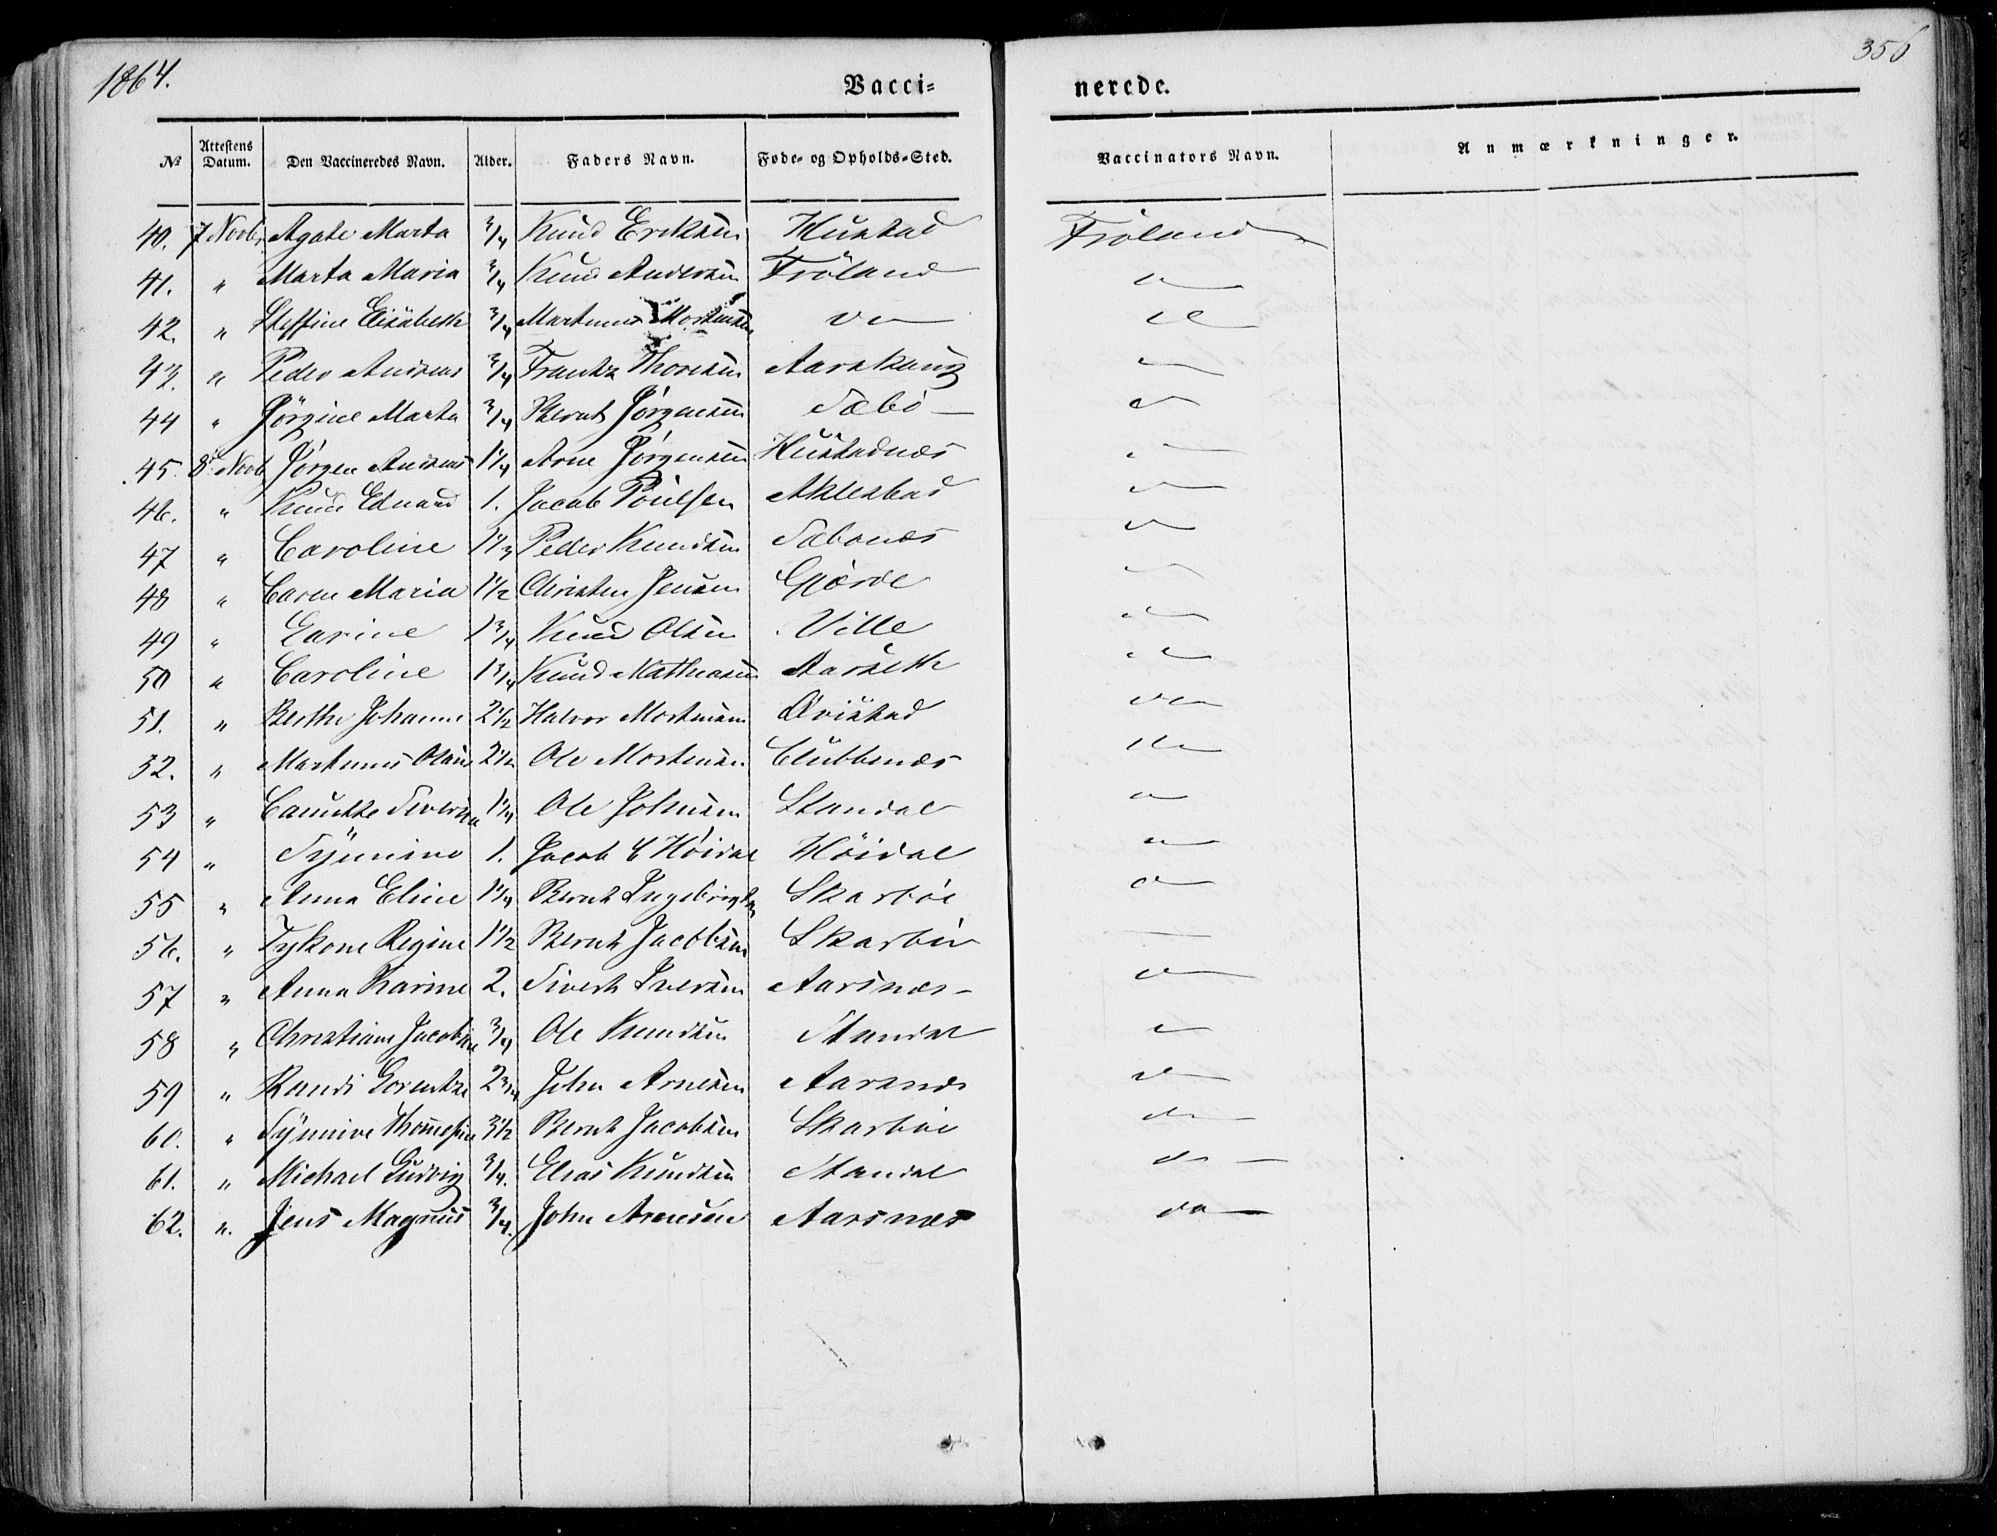 1864.
356
Vacci-
nerede.
No
Attestens Datum.
Den Vaccineredes Navn.
Alder.
Faders Navn.
Føde- og Opholds-Sted.
Vaccinators Navn.
Anmærkninger.
40. 7 Novbr Agate Marta 3/4 Knud Eriksen Hustad Frøland
41. " Marta Maria 3/4 Knud Andersen Frøland
42. " Steffine Elisabeth 3/4 Martinus Mortensen do
43. " Peder Andreas 3/4 Frantz Thoresen Aarskoug
44 " Jørgine Marta 3/4 Bernt Jørgensen Sæbø
45. 8 Novb Jørgen Andreas 1 1/4 Arne Jørgensen Hustadnæs
46. " Knud Eduard 1. Jacob Poulsen
47 " Caroline 1 1/3 Peder Knudsen Sæbønæs
48 " Caren Maria 1 1/2 Christen Jensen Gjørde
49 " Carine 1 3/4 Knud Olsen Ville
50 " Caroline 1 3/4 Knud Mathiasen Aarseth
51. " Berthe Johanne 2 1/2 Halvor Mortensen Qvistad
52. " Martinus Olaus 2 1/2 Ole Mortensen Clubbenæs
53 " 1 1/4 Ole Johnsen Standal
54 " Synnive 1. Jacob E Høidal Høidal
55 " Anna Eline 1 1/4 Bernt Ingebrigts Skarbøe
56. " Regine 1 1/2 Bernt Jacobsen Skarbøe
57 " Anna Karine 2. Sivert Iversen Aarsnæs
58 " Christiane Jacobine 3/4 Ole Knudsen Standal
59 " Randi Lorentze 2 3/4 John Arnesen Aarsnæs
60. " Synnive Thomesine 3 1/2 Bernt Jacobsen Skarbøe do
61. " Michael Ludvig 3/4. Elias Knudsen Standal do
62. " Jens Magnus 3/4. John Arnesen Aarsnæs do